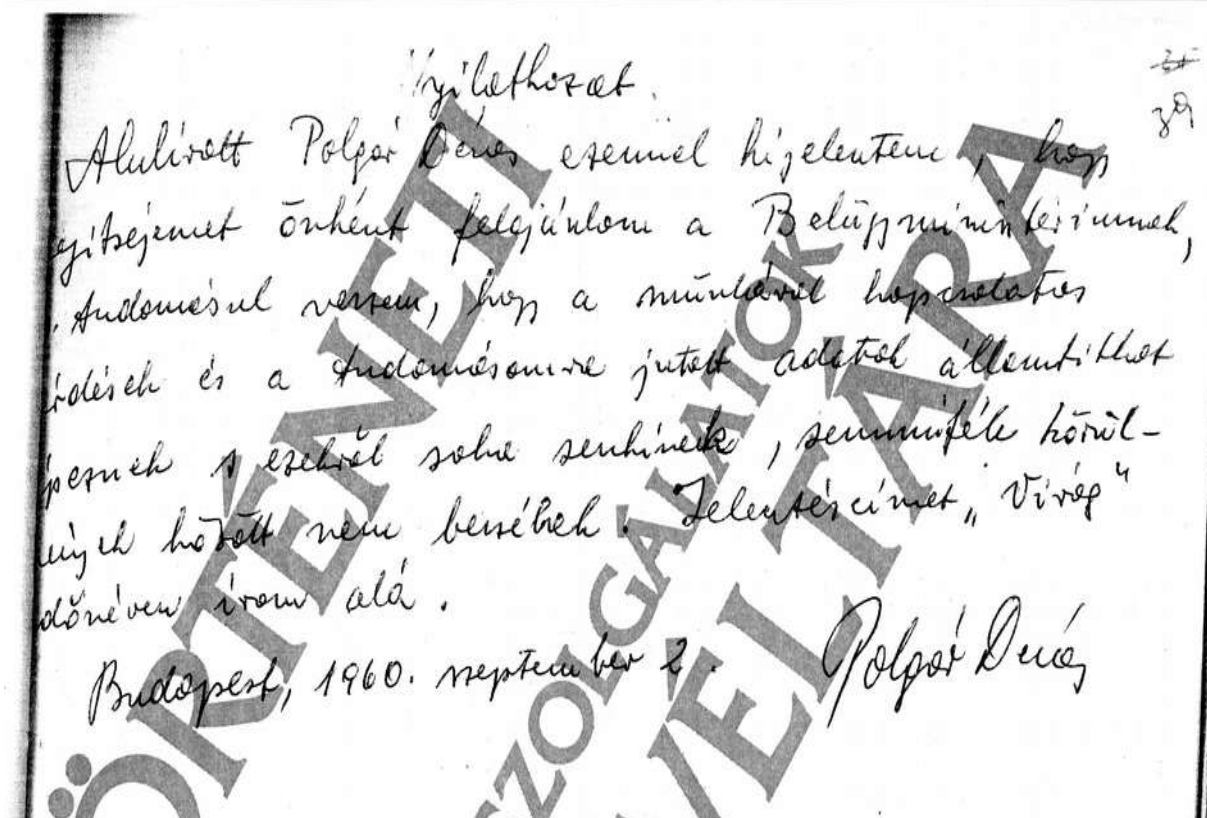 Nyilatkozat.
39
Alulírott Polgár Dénes ezennel kijelentem, hogy
egítségemet önként felajánlom a Belügyminisztériumnak,
Tudomásul veszem, hogy a munkával kapcsolatos
érdések és a tudomásomra jutott adatok államtitkot
épeznek s ezekről soha senkinek, semmiféle körül-
mények között nem beszélek. Jelentéseimet „Virág"
dőnéven írom alá.
Budapest, 1960. szeptember 2. Polgár Dénes
TÖRTÉNETI
SZOLGÁLATOK
LEVÉLTÁRA